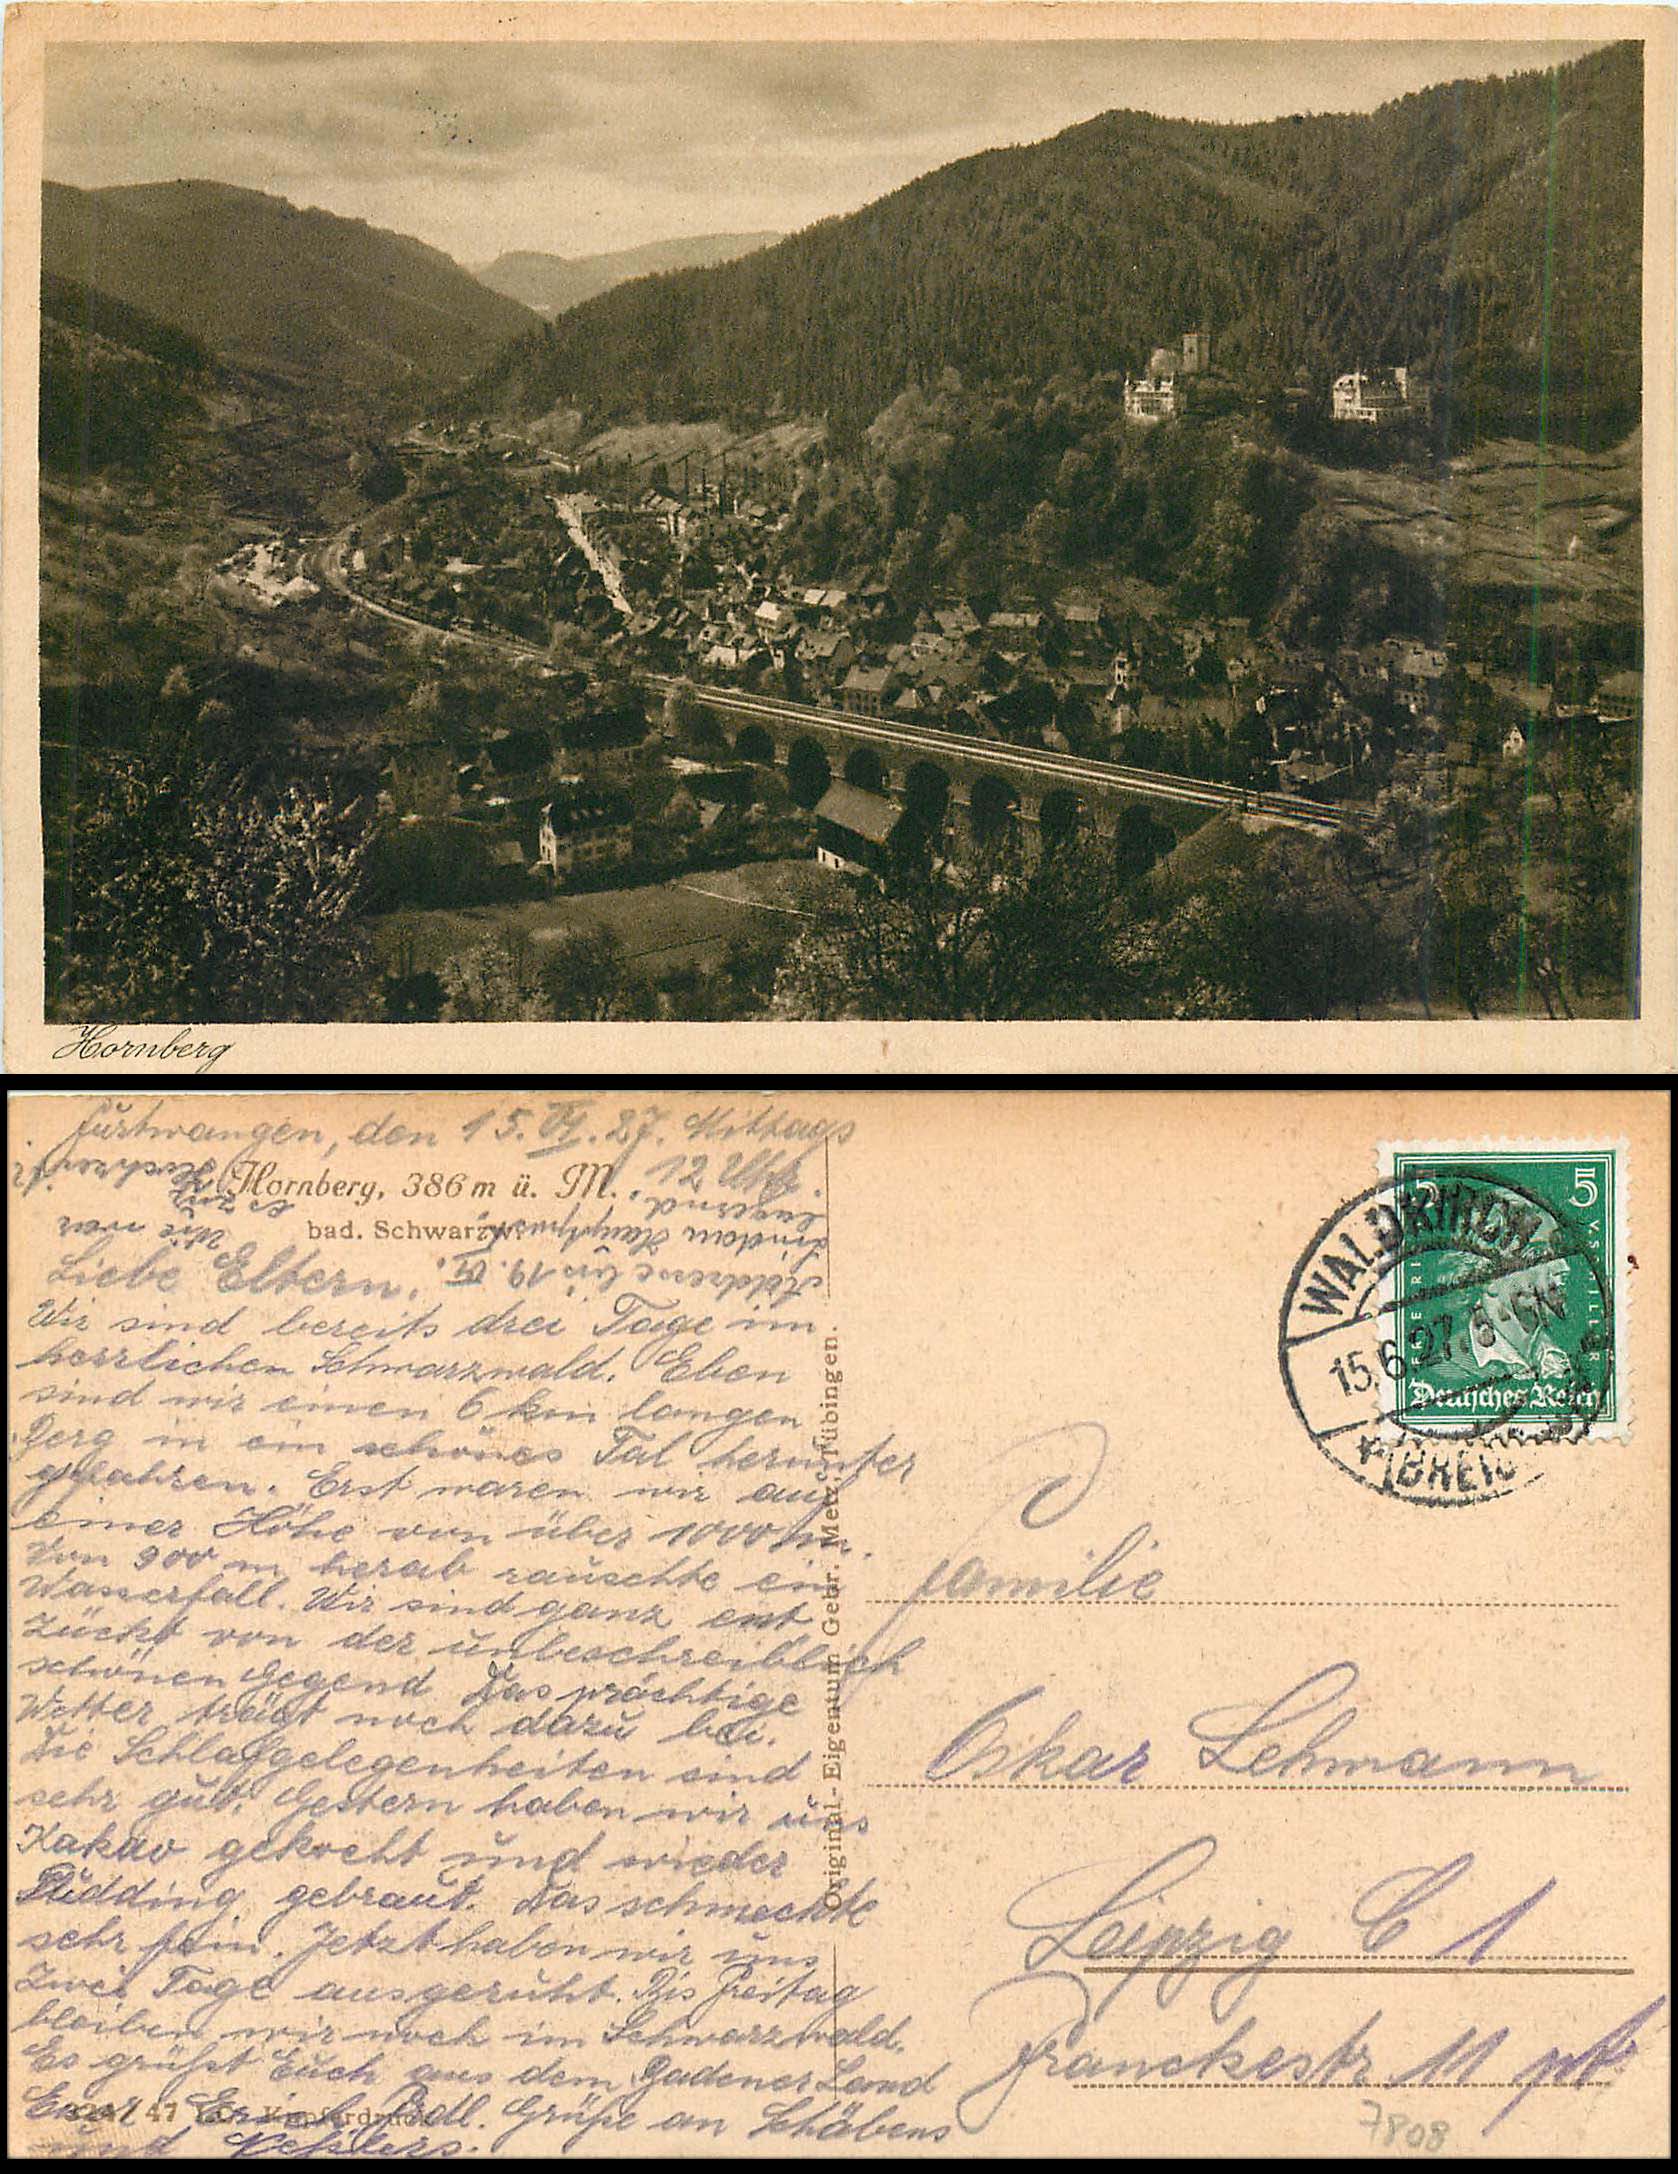 Hornberg
Furtwangen, den 15. VI. 27. Mittags
12 Uhr.
Hornberg, 386 m ü. M.
bad. Schwarzw.
Adresse bis 19. VI.
Lindau Hauptpost
lagernd.
Wie war
es zu
Liebe Eltern.
Wir sind bereits drei Tage im
herrlichen Schwarzwald. Eben
sind wir einen 6 km langen
Berg in ein schönes Tal herunter
gefahren. Erst waren wir auf
einer Höhe von über 1000 m.
Von 900 m herab rauschte ein
Wasserfall. Wir sind ganz ent
zückt von der unbeschreiblich
schönen Gegend. Das prächtige
Wetter trägt noch dazu bei.
Die Schlafgelegenheiten sind
sehr gut. Gestern haben wir uns
Kakao gekocht und wieder
Pudding gebraut. Das schmeckte
sehr fein. Jetzt haben wir uns
zwei Tage ausgeruht. Bis Freitag
bleiben wir noch im Schwarzwald.
Es grüßt Euch aus dem Badener Land
Euer Erich. Frdl. Grüße an Schäbens
und Keßlers.
Kupferdruck
Original-Eigentum Gebr. Metz, Tübingen.
5 5
FRIEDRICH V. SCHILLER
Deutsches Reich
WALDKIRCH
15.6.27. 5-6N
(BREISG
Familie
Oskar Lehmann
Leipzig C 1
Franckestr. 11 pt.
7808